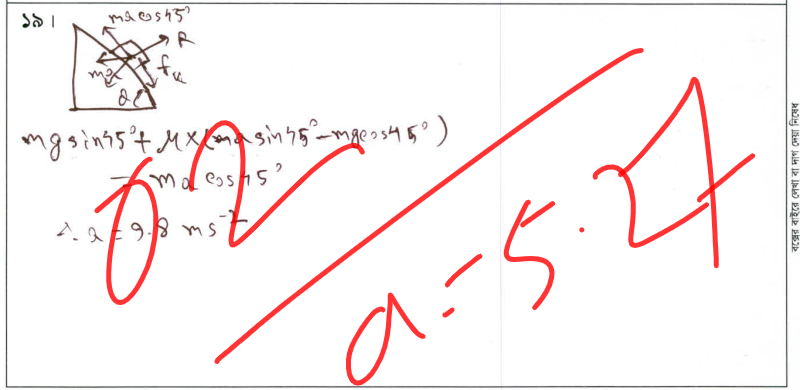 ১৯।
ma cos45°
R
ma
fk
mg sin45° + μ×(ma sin45° - mg cos45°)
= ma cos45°
∴ a = 9.8 ms⁻²
02
a = 5.27
বক্সের বাইরে লেখা বা দাগ দেয়া নিষেধ